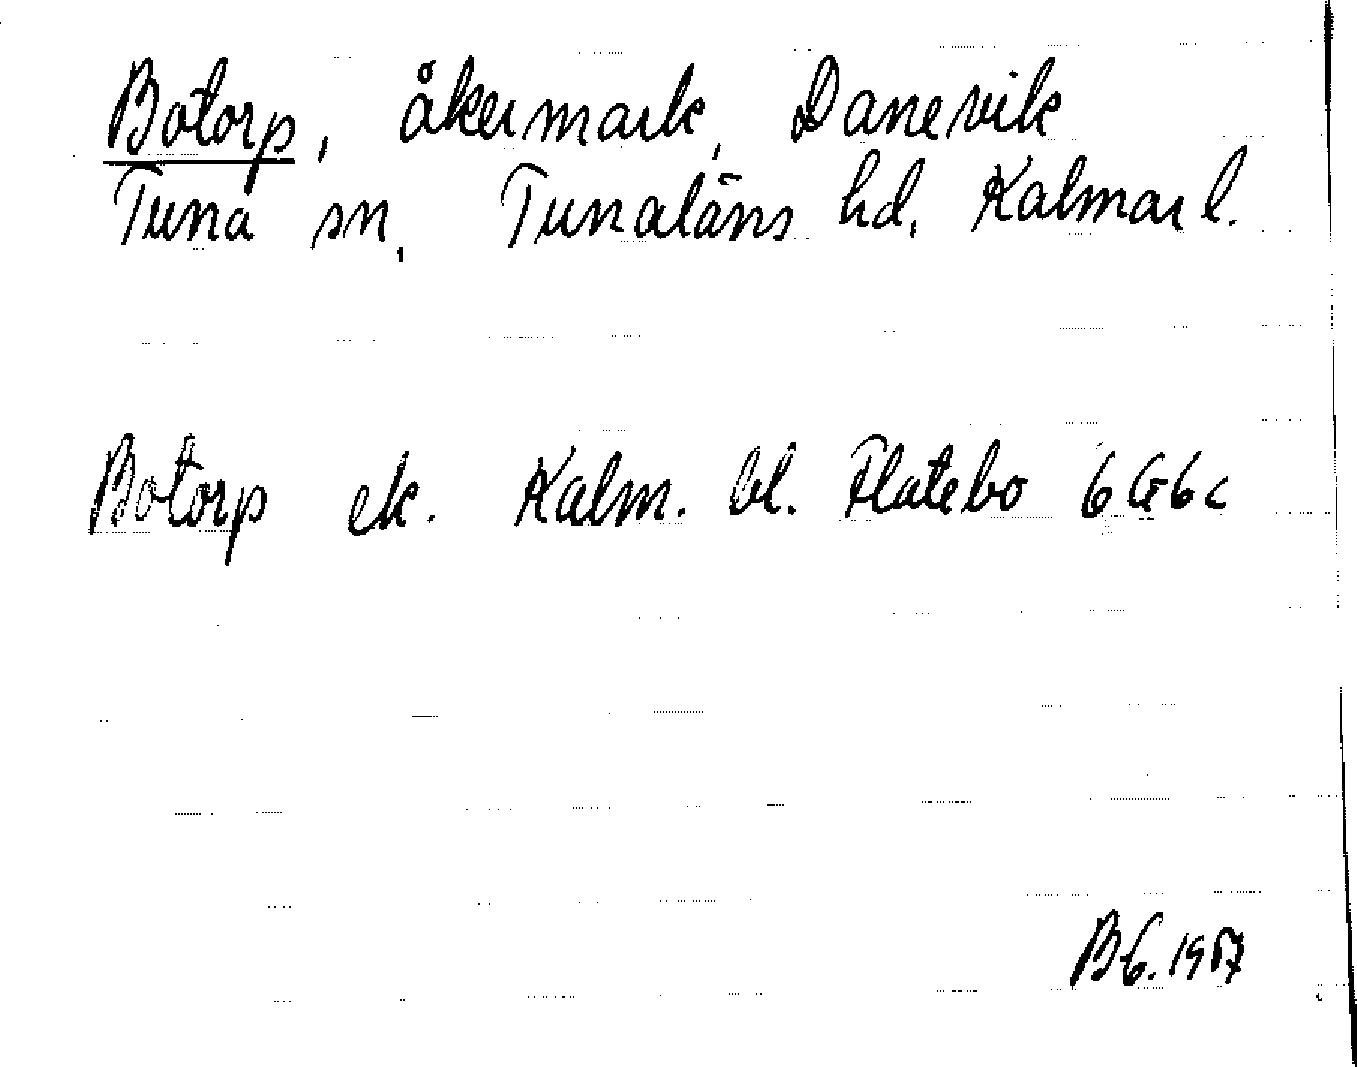 Botorp, åkermark, Danevik
Tuna sn, Tunaläns hd, Kalmar l.
Botorp ek. Kalm. bl. Flatebo 6G6c